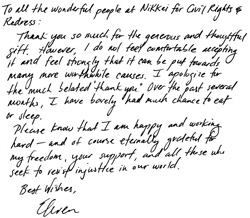 To all the wonderful people at Nikkei for Civil Rights &
Redress:
Thank you so much for the generous and thoughtful
gift. However, I do not feel comfortable accepting
it and feel strongly that it can be put towards
many more worthwhile causes. I apologise for
the much belated "thank you." Over the past several
months, I have barely had much chance to eat
or sleep.
Please know that I am happy and working
hard — and of course eternally grateful for
my freedom, your support, and all those who
seek to resist injustice in our world.
Best Wishes,